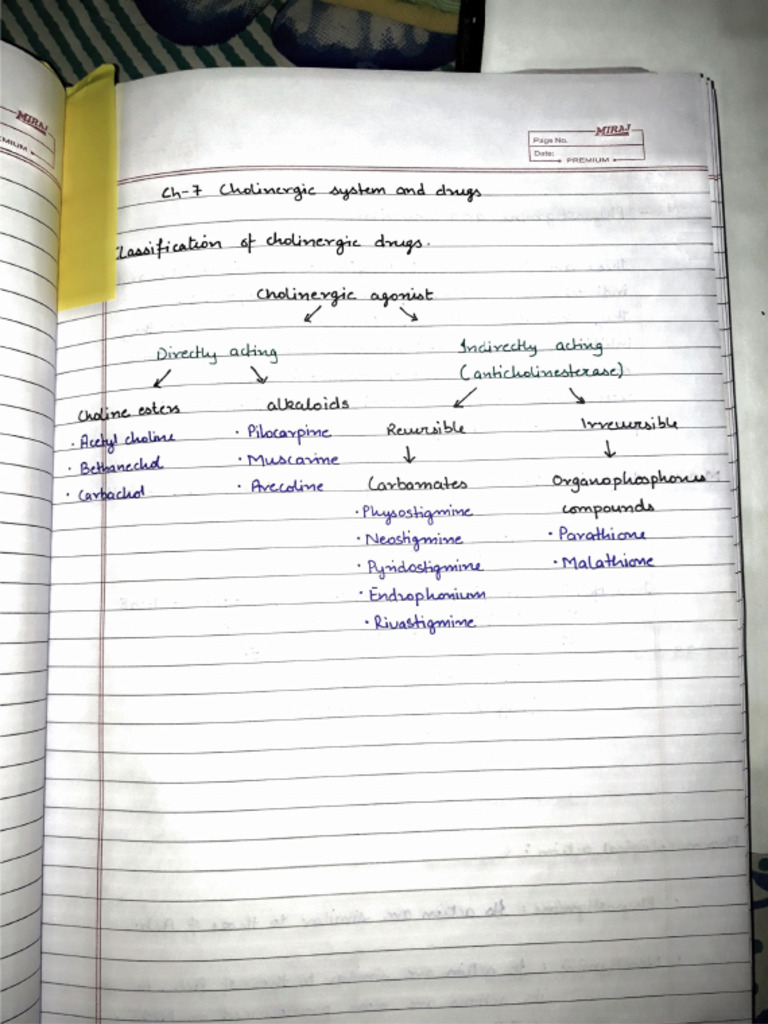 MIRAJ
EMIUM
MIRAJ
Page No.
Date:
PREMIUM
Ch-7 Cholinergic system and drugs
Classification of cholinergic drugs.
Cholinergic agonist
Directly acting
Indirectly acting
(anticholinesterase)
Choline esters
• Acetyl choline
• Bethanechol
• Carbachol
alkaloids
• Pilocarpine
• Muscarine
• Arecoline
Reversible
Carbamates
• Physostigmine
• Neostigmine
• Pyridostigmine
• Endrophonium
• Rivastigmine
Irreversible
Organophosphorus
compounds
• Parathione
• Malathione